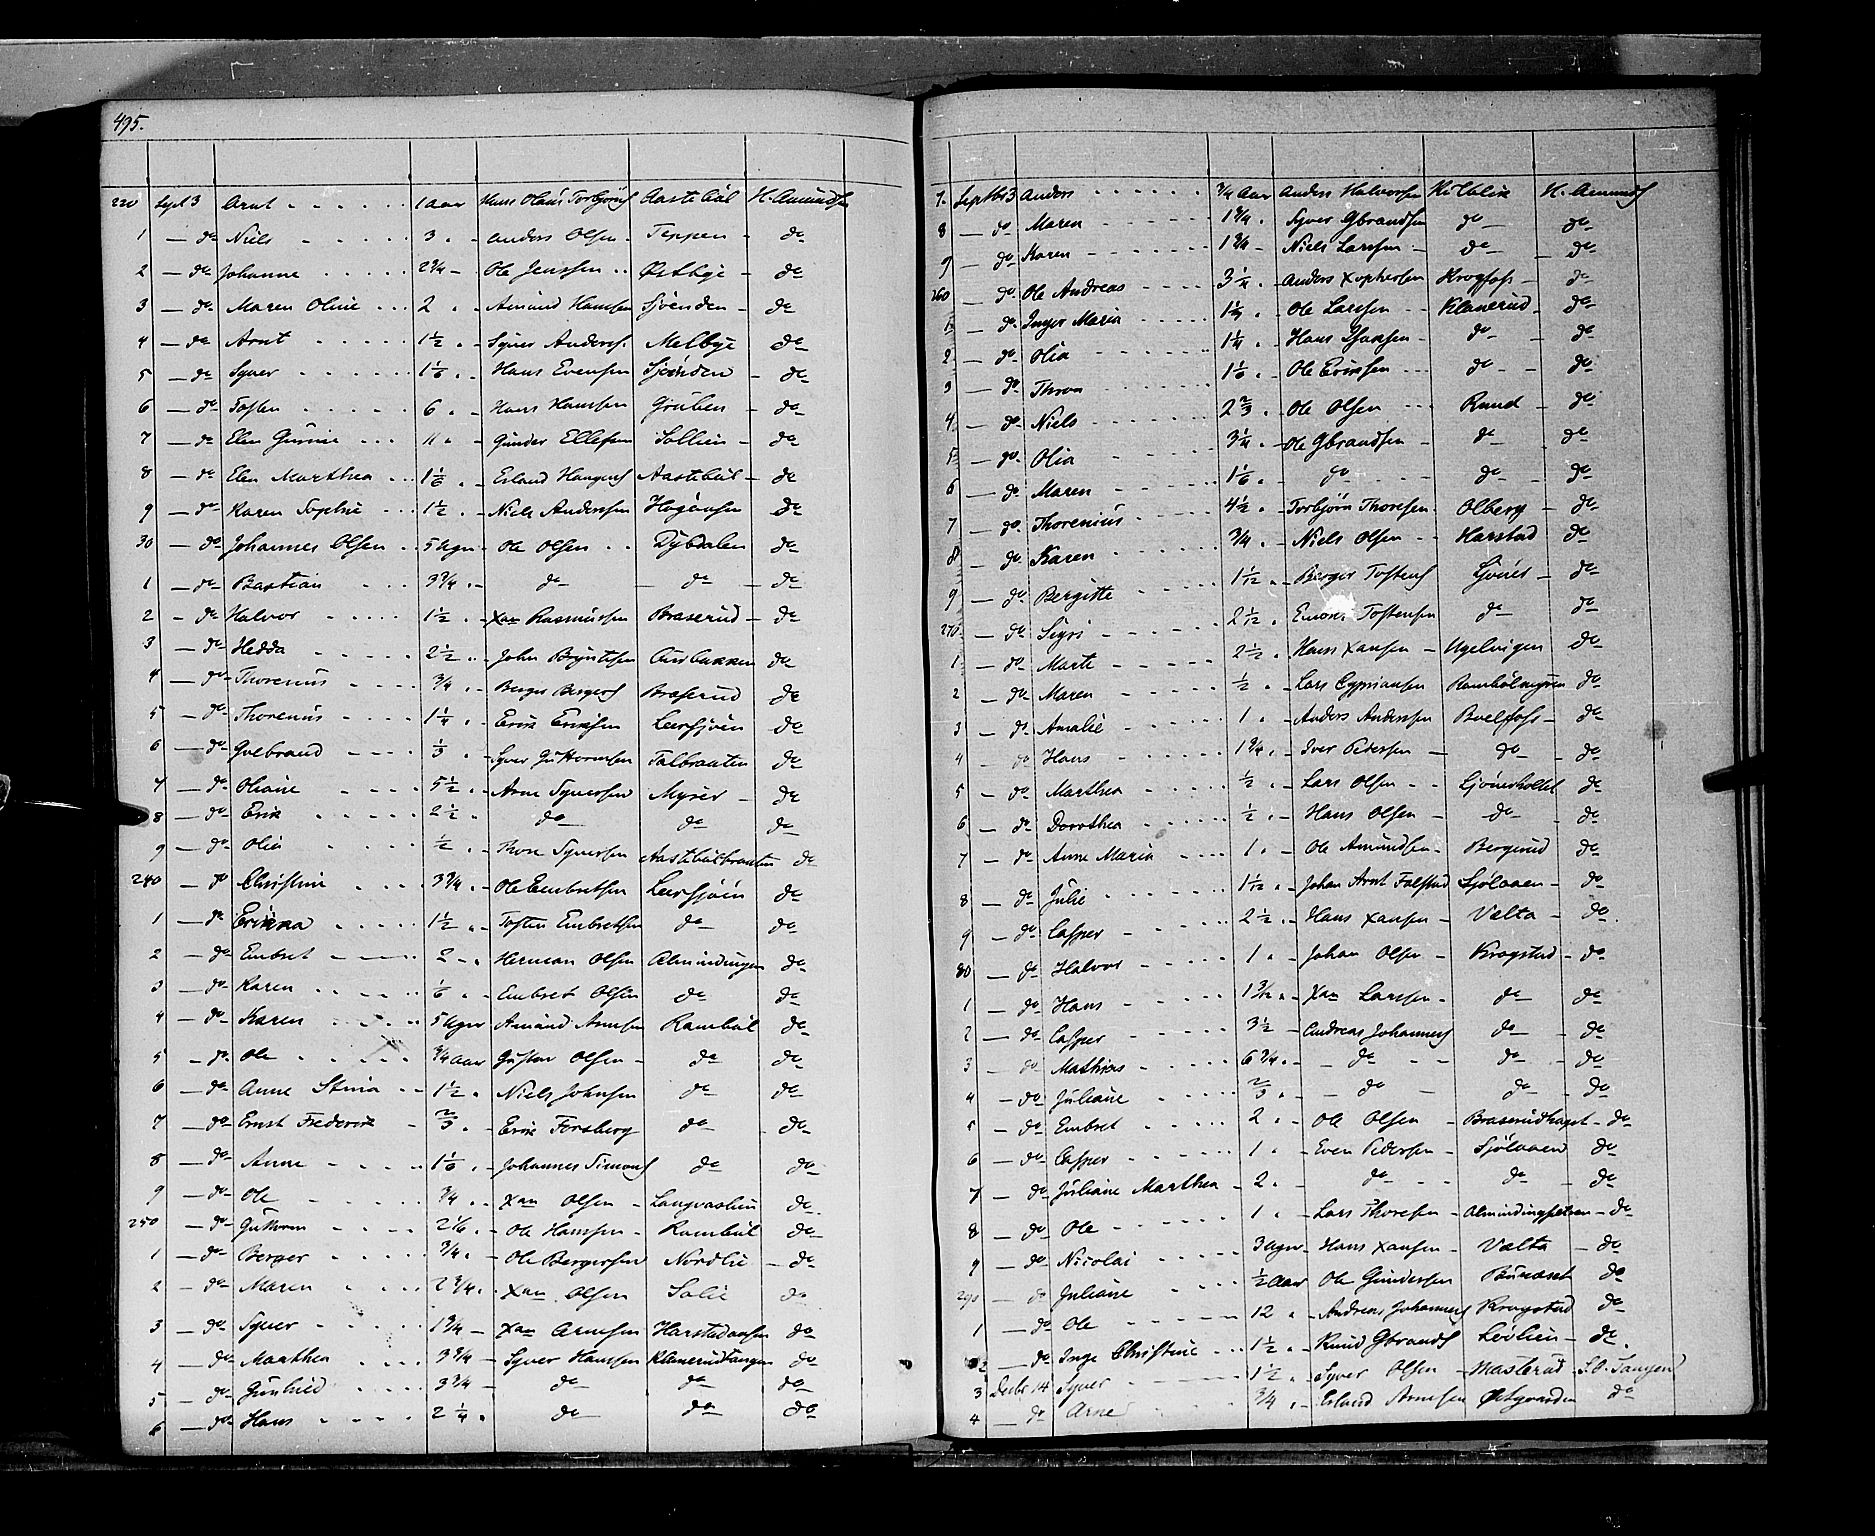 495.
220 Sept 3 Arnt 1 Aar Hans Olaus Torbjörns Aastebül H. Amunds
1 — do Niels 3 Anders Olsen Teppen do
2 — do Johanne 2 3/4 Ole Jenssen Östbye do
3 — do Maren Oline 2 Amund Hanssen Sjönden do
4 — do Arnt 1 1/2 Syver Anderss. Melbye do
5 — do Syver 1 1/6 Hans Evensen Sjönden do
6 — do Tosten 6 Hans Hanssen Gruben do
7 — do Elen Gurine 11 Gunder Ellefsen Sollien do
8 — do Elen Marthea 1 1/6 Erland Haagens Aastebül do
9 — do Karen Sophie 1 1/2 Niels Anderssen Högaasen do
30 — do Johannes Olsen 5 Uger Ole Olsen Dybdalen do
1 — do Bastian 3 3/4 do do do
2 — do Halvor 1 1/2 Xan Rasmussen Braserud do
3 — do Hedda 2 1/2 John Bryntesen Aasbakken do
4 — do Thorenus 3/4 Berger Bergers Braserud do
5 — do Thorenus 1 1/4 Erik Eriksen Leersjöen do
6 — do Gulbrand 1/3 Syver Guttormsen Talbraaten do
7 — do Oliane 5 1/2 Arne Syversen Myrer do
8 — do Erik 2 1/2 do do do
9 — do Olia 1/2 Thore Syversen Aastebülbraaten do
240 — do Christine 3 3/4 Ole Embretsen Leersjöen do
1 — do Erikka 1 1/2 Tosten Embretsen do do
2 — do Embret 2 Herman Olsen Almindingen do
3 — do Karen 1/6 Embret Olsen do do
4 — do Karen 5 Uger Amund Arnesen Rambül do
5 — do Ole 3/4 Aar Gustav Olsen do do
6 — do Anne Stina 1 1/2 Niels Johnsen do do
7 — do Ernst Frederik 2/3 Erik Forsberg do do
8 — do Anne 1 1/6 Johannes Simons do do
9 — do Ole 3/4 Xan Olsen Langvaslien do
250 — do Guttorm 2 1/6 Ole Hanssen Rambül do
1 — do Berger 3/4 Ole Bergersen Nordlie do
2 — do Maren 2 3/4 Xan Olsen Solie do
3 — do Syver 1 3/4 Xan Arnesen Harstadaasen do
4 — do Marthea 3 3/4 Syver Hanssen Klanerudtangen do
5 — do Gunhild 3 3/4 do do do
6 — do Hans 2 1/4 do do do
7. Septbr 3 Anders 3/4 Aar Anders Halvorsen Kilebün H. Amunds
8 — do Maren 1 3/4 Syver Gbrandsen do do
9 — do Karen 1 3/4 Niels Larssen do do
260 — do Ole Andreas 3 1/4 Anders Xophersen Krogfoss do
1 — do Inger Maria 1 1/4 Ole Larssen Klanerud do
2 — do Olia 1 1/4 Hans Isaksen do do
3 — do Thron 1 1/6 Ole Erikssen do do
4 — do Niels 2 2/3 Ole Olsen Ruud do
5 — do Olia 3 1/4 Ole Gbrandsen do do
6 — do Maren 1 1/6 do do do
7 — do Thorenius 4 1/2 Torbjörn Thoresen Olberg do
8 — do Karen 3/4 Niels Olsen Harstad do
9 — do Bergitte 1 1/12 Berger Tostens Sjöner do
270 — do Sigri 2 1/12 Tostensen do do
1 — do Marte 2 1/2 Hans Xansen Ugelvigen do
2 — do Maren 1/2 Lars Cypriansen Rambölmyren do
3 — do Amalie 1 Anders Anderssen Buelfoss do
4 do Hans 1 3/4 Iver Pedersen do do
5 — do Marthea 1/2 Lars Olsen Sjönerholtet do
6 — do Dorothea 1/2 Hans Olsen do do
7 — do Anne Maria 1 Ole Amundsen Bergerud do
8 — do Julie 1 1/12 Johan Arnt Falstad Sjölaaen do
9 — do Casper 2 1/2 Hans Xansen Valta do
80 — do Halvor 1 Johan Olsen Krogstad do
1 — do Hans 1 3/12 Xan Larssen do do
2 — do Casper 3 1/2 Andreas Johanness do do
3 do Mathias 6 3/4 do do do
4 — do Juliane 2/3 do do do
5 — do Embret 2 Ole Olsen Braserudhaget do
6 — do Casper 1 Even Pedersen Sjölaaen do
7 — do Juliane Marthea 2 do do do
8 — do Ole 1 Lars Thoresen Almindingsetren do
9 — do Nicolai 3 Uger Hans Xansen Valta do
290 do Juliane 1/2 Aar Ole Gundersen do
1 — do Ole 12 Andreas Johanness Krogstad do
2 — do Inge Christine 1 1/2 Knud Gbrands Lövlien do
3 Decbr 14 Syver 1 1/2 Syver Olsen Masterud S. O. Tangen
4 — do Arne 3/4 Erland Arnesen Östgaarden do